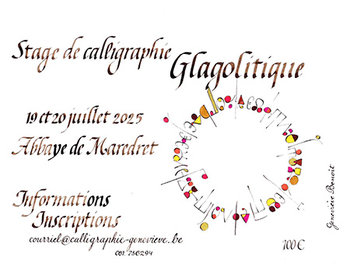 Stage de calligraphie
Glagolitique
19 et 20 juillet 2025
Abbaye de Maredret
Informations
Inscriptions
courriel@calligraphie-genevieve.be
Geneviève Benoit
100 €